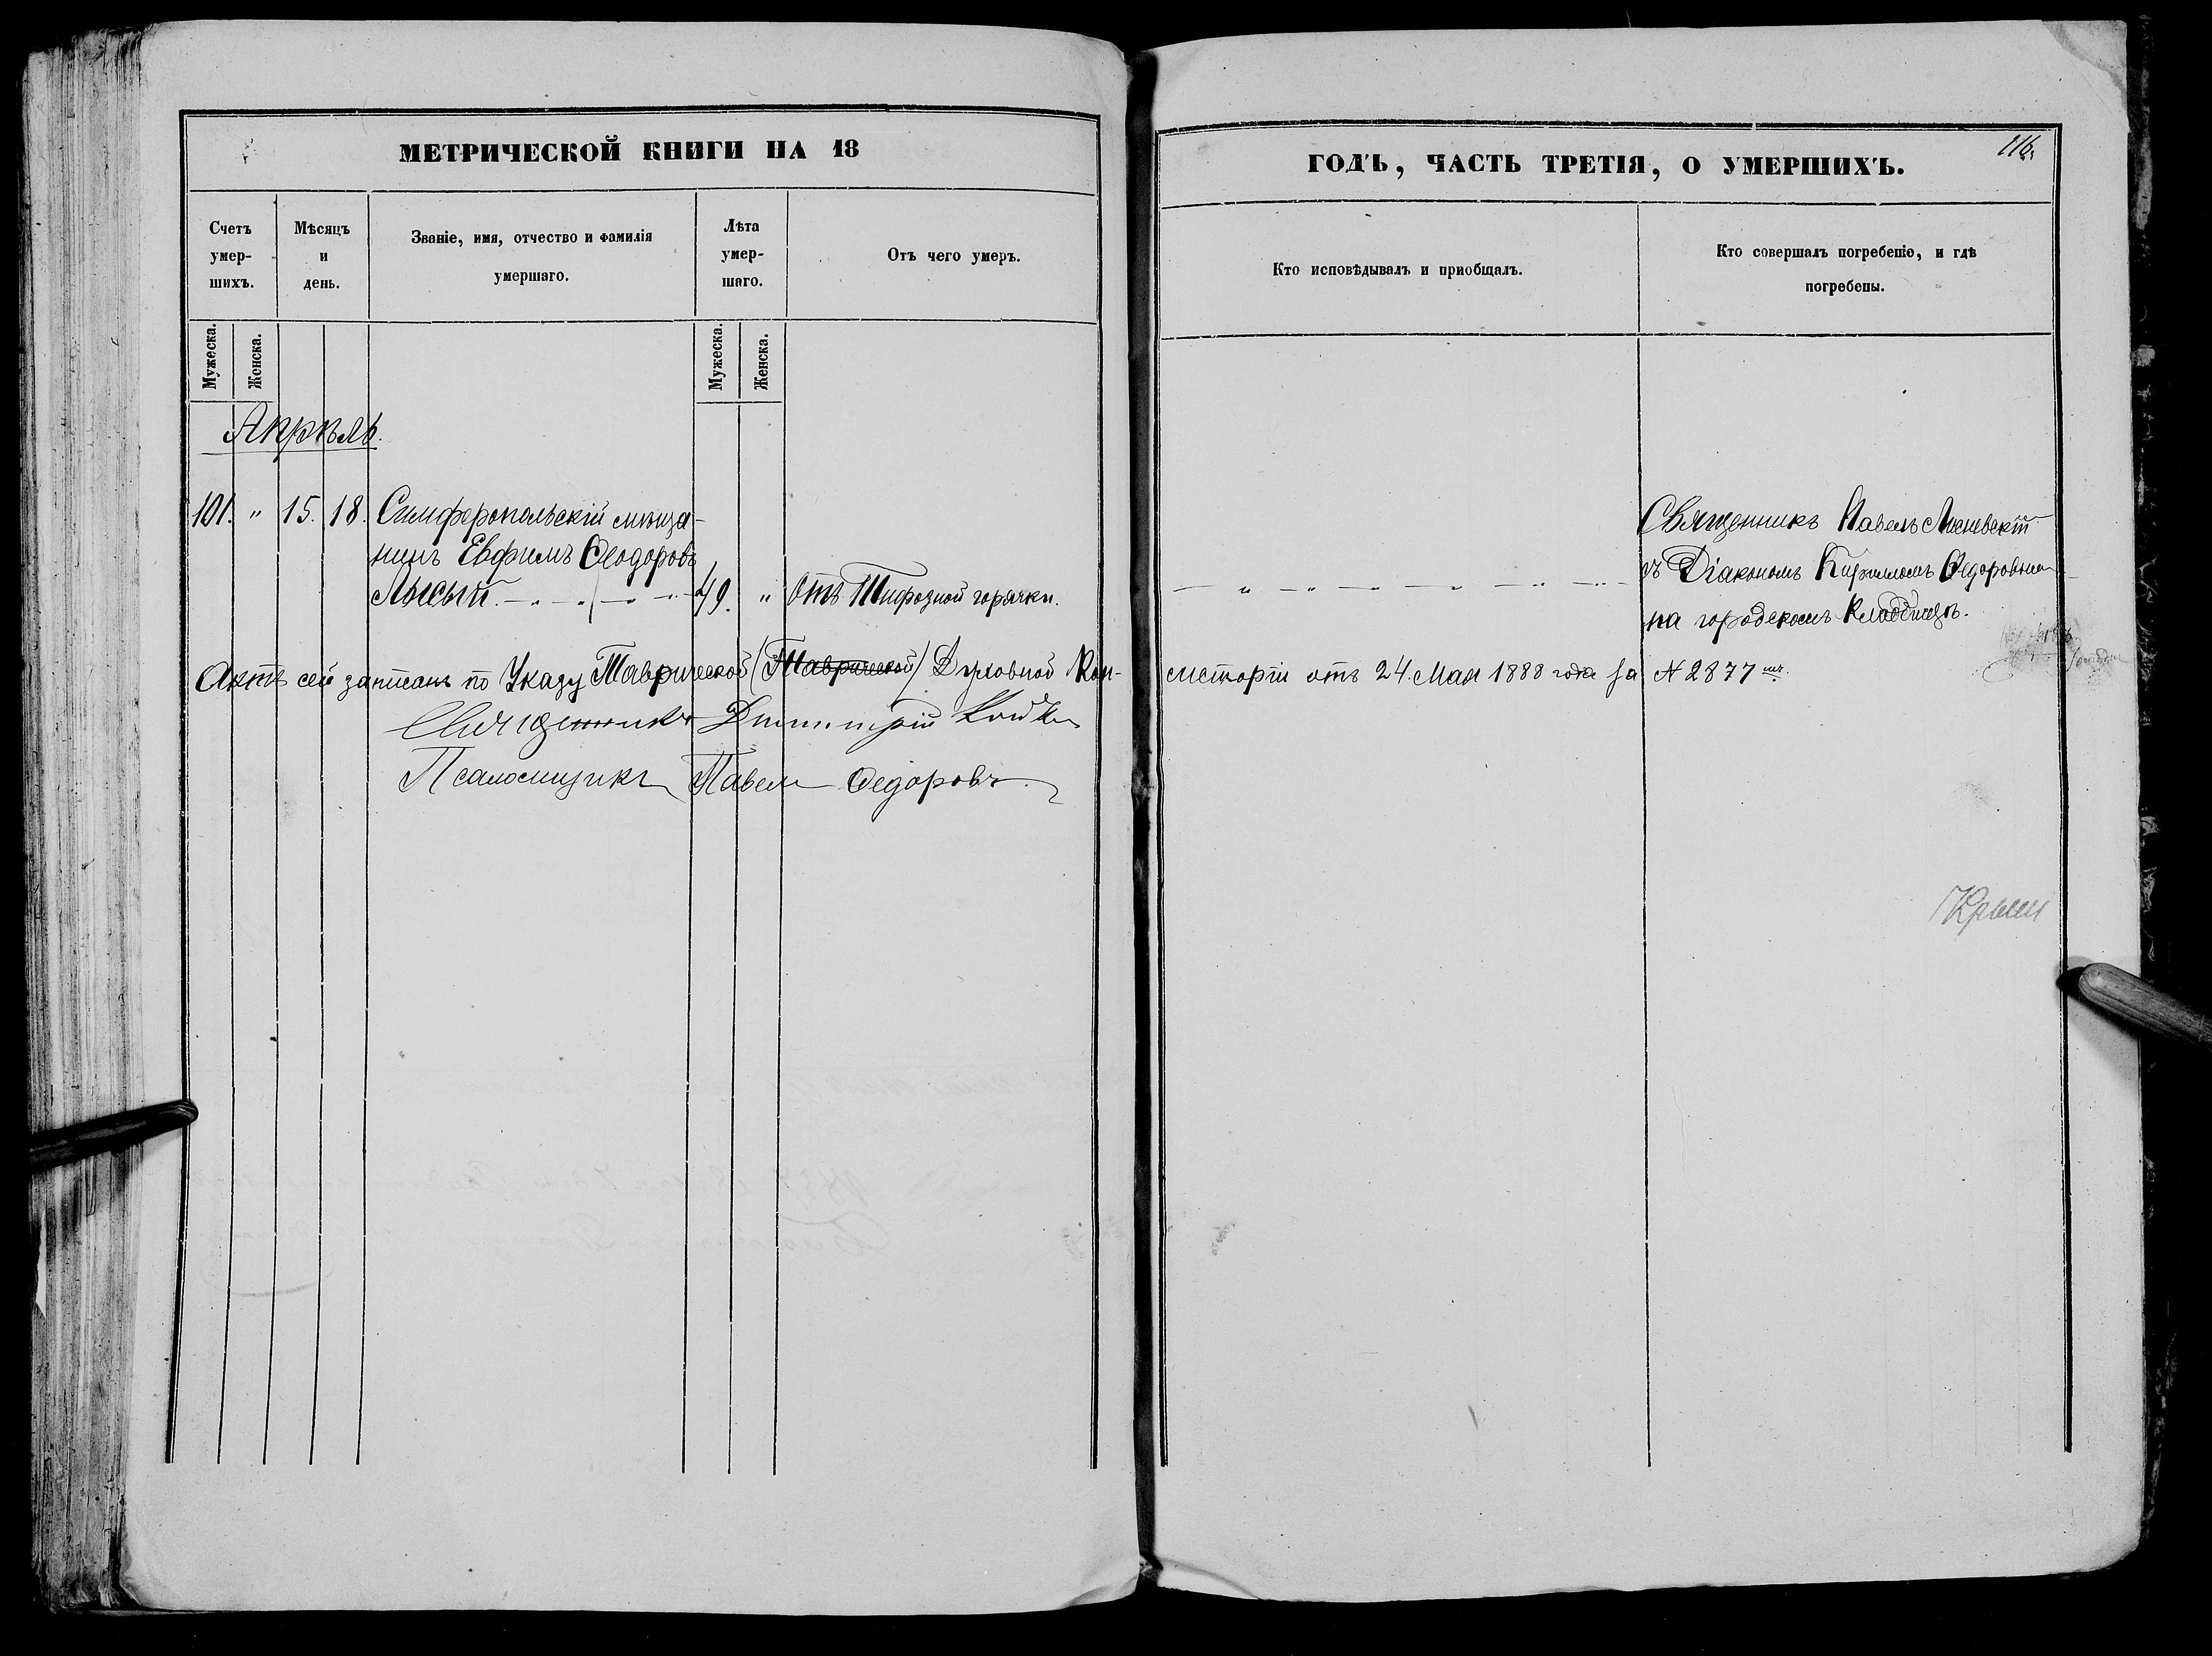 МЕТРИЧЕСКОЙ КНИГИ НА 18
Счетъ умер-шихъ.
Мѣсяцъ и день.
Званіе, имя, отчество и фамилія умершаго.
Лѣта умер-шаго.
Отъ чего умеръ.
Мужеска.
Женска.
Мужеска.
Женска.
Апрѣль.
101. " 15. 18. Симферопольскій мѣща-
нинъ Евфимъ Ѳеодоровъ
Лысый. 49. " Отъ Тифозной горячки.
Актъ сей записанъ по Указу Таврической (Таврической) Духовной Кон-
Священникъ Димитрій Койко
Псаломщикъ Павелъ Ѳедоровъ
116.
ГОДЪ, ЧАСТЬ ТРЕТІЯ, О УМЕРШИХЪ.
Кто исповѣдывалъ и приобщалъ.
Кто совершалъ погребеніе, и гдѣ погребены.
Священникъ Павелъ
съ Діакономъ Кирилломъ Ѳедоровымъ
на городскомъ Кладбищѣ.
систоріи отъ 24. Мая 1888 года за N 2877